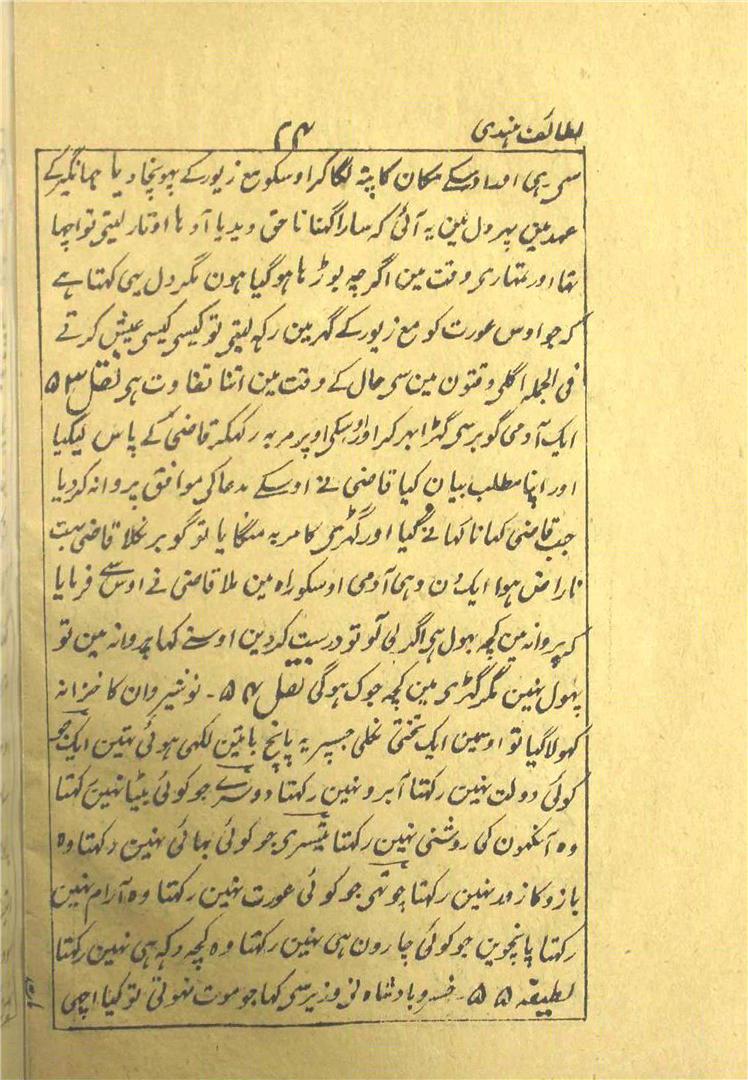 لطائف ہندی
۲۴
سی ہی اور اوسکے مکان کا پتہ لگا کر اوسکو مع زیور کے پہونچا دیا جہانگیر کے
عہد مین پہر دل مین یہ آئی کہ سارا گہنا ناحق دیدیا آدہا اوتار لیتی تو اچہا
تہا اور تمہاری وقت مین اگرچہ بوڑہا ہو گیا ہون مگر دل یہی کہتا ہے
کہ جو اوس عورت کو مع زیور کے گہر مین رکہہ لیتی تو کیسی کیسی عیش کرتے
فی الجملہ اگلی وقتون مین سی حال کے وقت مین اتنا تفاوت ہی نقل ۵۳
ایک آدمی گوبر سی گہڑا بہر کر اور اوسکی اوپر مربہ رکہکر قاضی کے پاس لیگیا
اور اپنا مطلب بیان کیا قاضی نے اوسکے مدعا کی موافق پروانہ کر دیا
جب قاضی کہانا کہانے گیا اور گہڑی کا مربہ منگایا تو گوبر نکلا قاضی بہت
ناراض ہوا ایک دن وہی آدمی اوسکو راہ مین ملا قاضی نے اوس سے فرمایا
کہ پروانہ مین کچہ بہول ہی اگر لی آو تو درست کر دین اوسنے کہا پروانہ مین تو
بہول نہین مگر گہڑی مین کچہ چوک ہوگی نقل ۵۴ - نوشیروان کا خزانہ
کہولا گیا تو اوسمین ایک تختی نکلی جسپر یہ پانچ باتین لکہی ہوئی تہین ایک جو
کوئی دولت نہین رکہتا آبرو نہین رکہتا دوسرے جو کوئی بیٹا نہین رکہتا
وہ آنکہون کی روشنی نہین رکہتا تیسری جو کوئی بہائی نہین رکہتا وہ
بازو کا زور نہین رکہتا چوتہی جو کوئی عورت نہین رکہتا وہ آرام نہین
رکہتا پانچوین جو کوئی چارون ہی نہین رکہتا وہ کچہ دکہہ ہی نہین رکہتا
لطیفہ ۵۵ - خسرو بادشاہ نی وزیر سی کہا جو موت نہوتی تو کیا اچہی